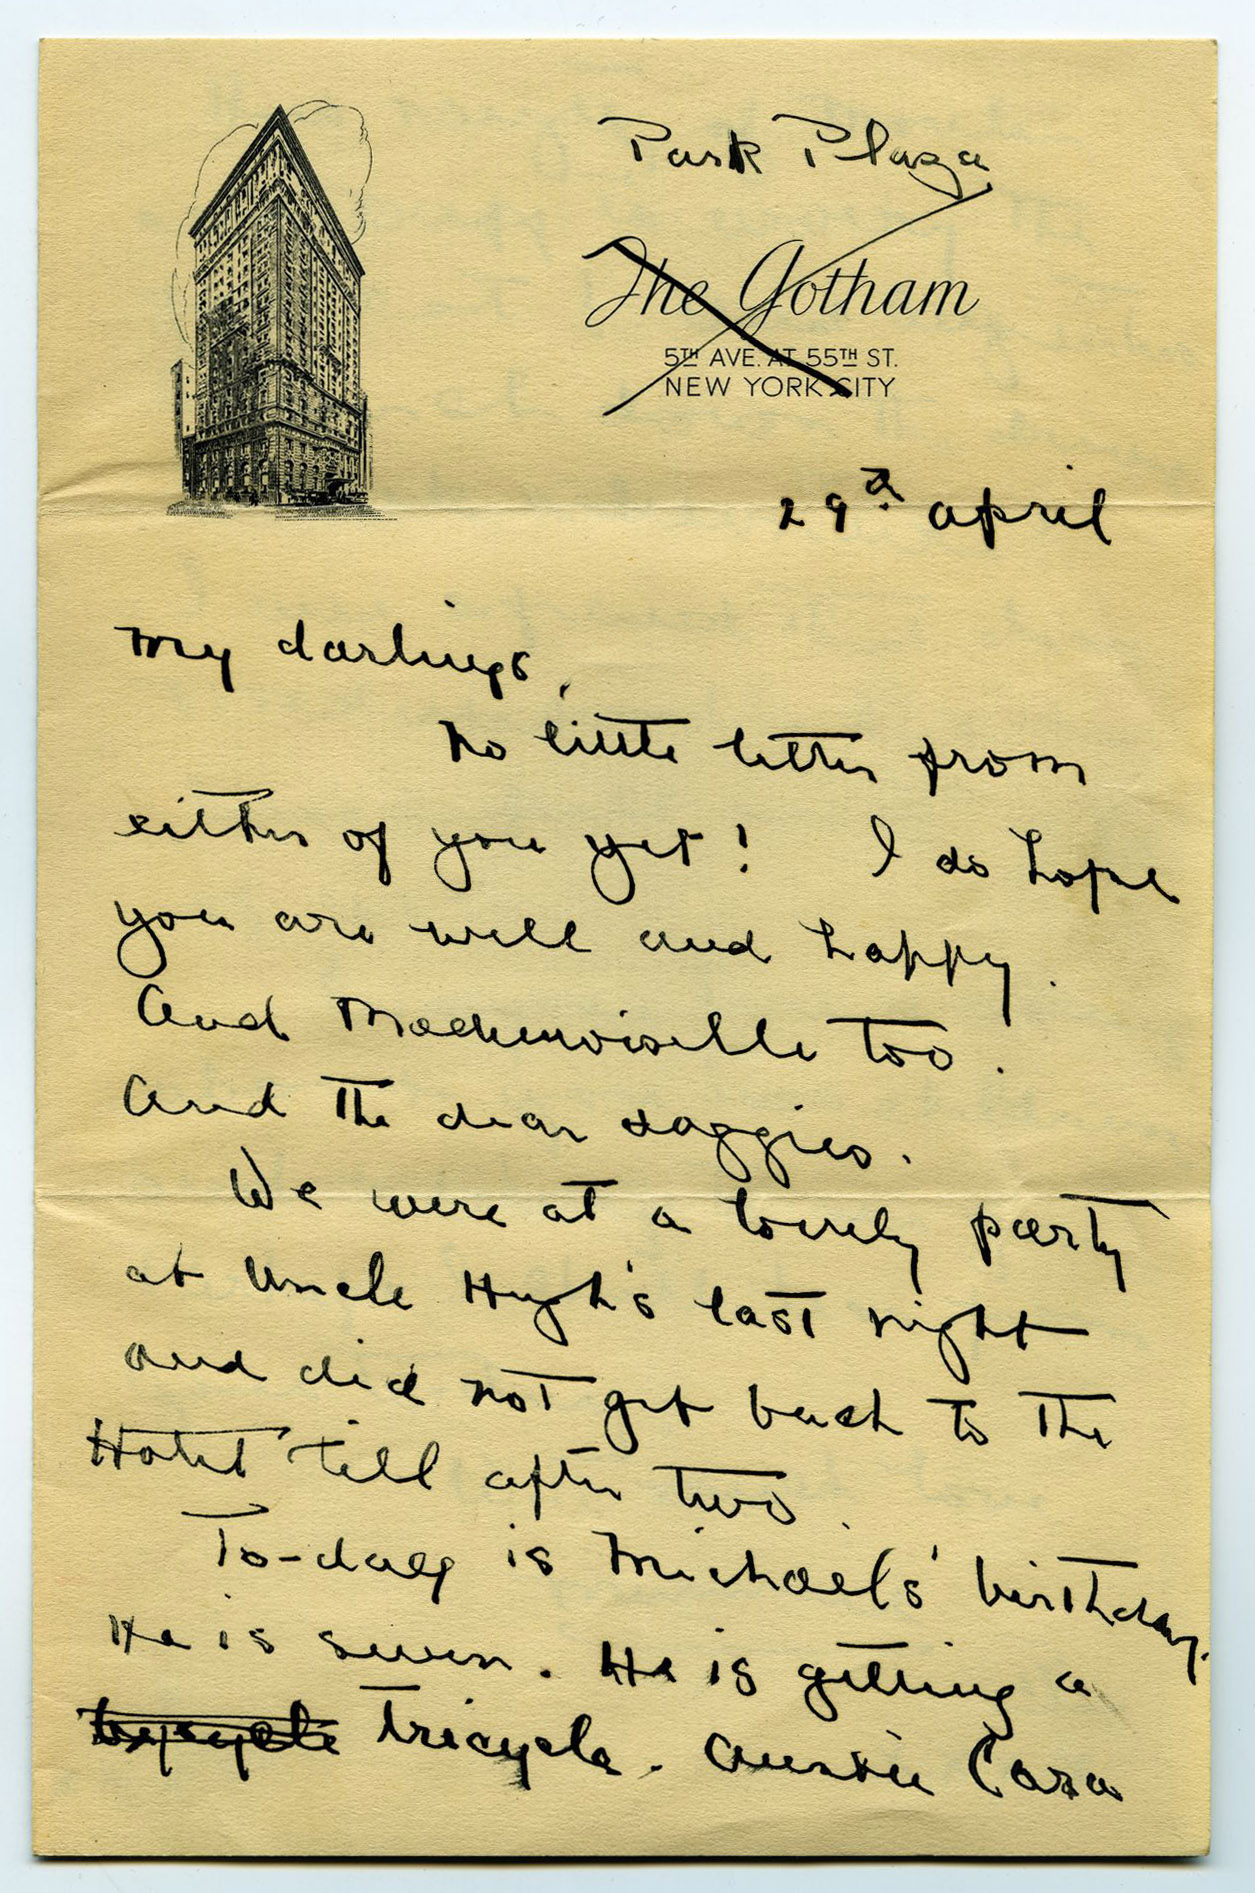 Park Plaza
The Gotham
5TH AVE. AT 55TH ST.
NEW YORK CITY
29th April
My darlings,
No little letter from
either of you yet! I do hope
you are well and happy.
And Mademoiselle too.
And the dear doggies.
We were at a lovely party
at Uncle Hugh's last night
and did not get back to the
Hotel till after two.
To-day is Michael's birthday.
He is seven. He is getting a
bycycle tricycle. Auntie Cara